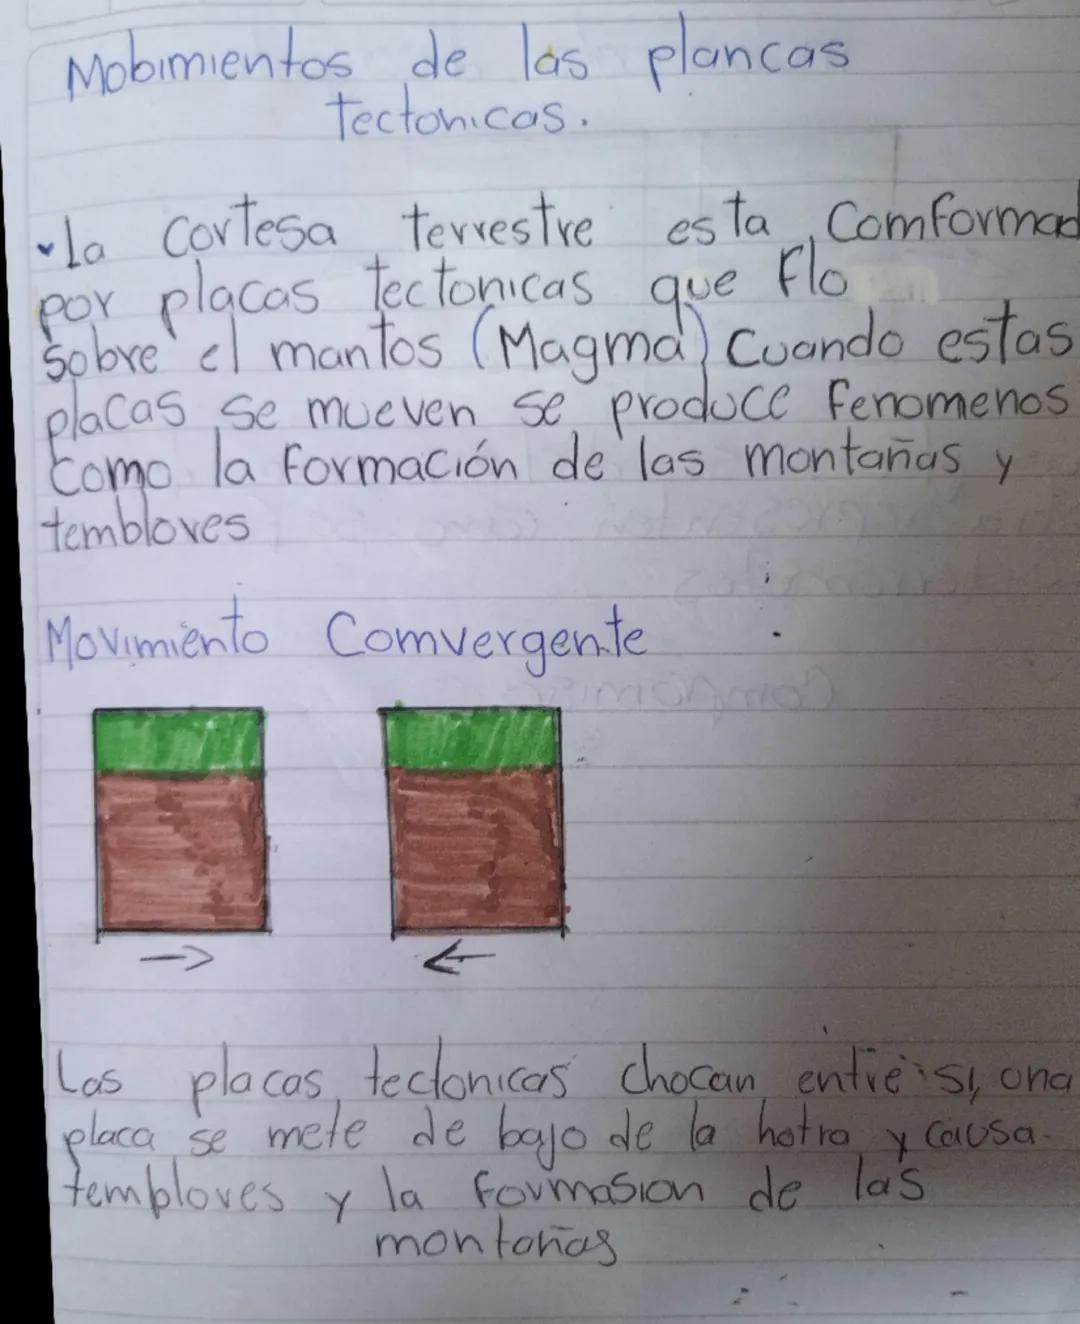 Mobimientos de las plancas
tectonicas.
La cortesa terrestre esta Comformad
por placas tectonicas que flo
sobre el mantos (Magma) Cuando estas
placas se mueven se produce fenomenos
como la formación de las montañas y
temblores
Movimiento Comvergente
Las placas tectonicas chocan entre si, una
placa se mete de bajo de la hotra y causa
temblores y la formasion de las
montañas